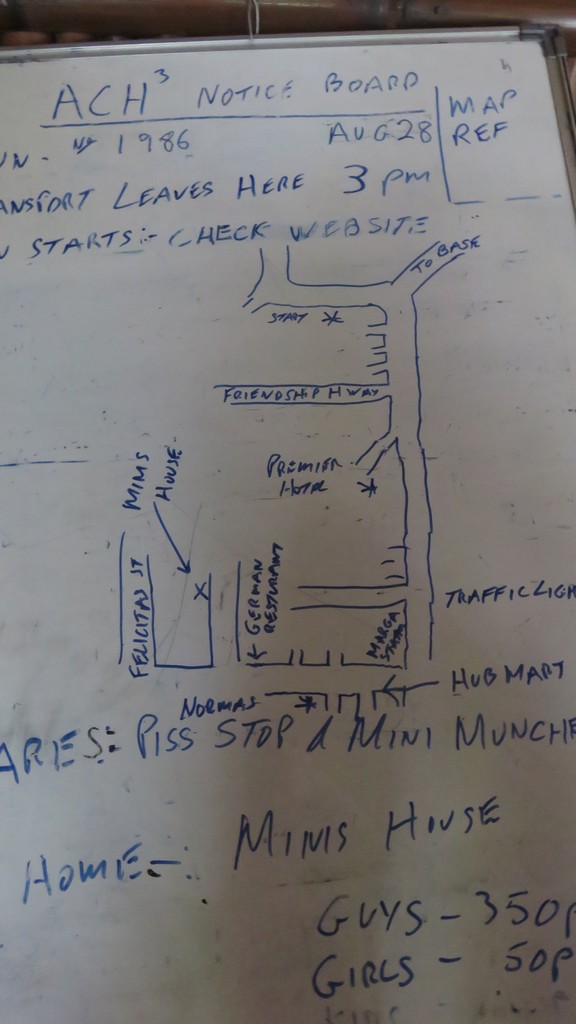 ACH³ NOTICE BOARD
UN - Nº 1986 AUG 28
MAP
REF
ANSPORT LEAVES HERE 3 pm
N STARTS:- CHECK WEBSITE
TO BASE
START
FRIENDSHIP H WAY
MIMS
HOUSE
PREMIER
HOTEL
FELICITAS ST
X
GERMAN
RESTURANT
TRAFFIC LIGH
MARGA
HUB MART
NORMAS
ARES:- PISS STOP & MINI MUNCHE
HOME-: MIMS HOUSE
GUYS - 350P
GIRLS - 50P